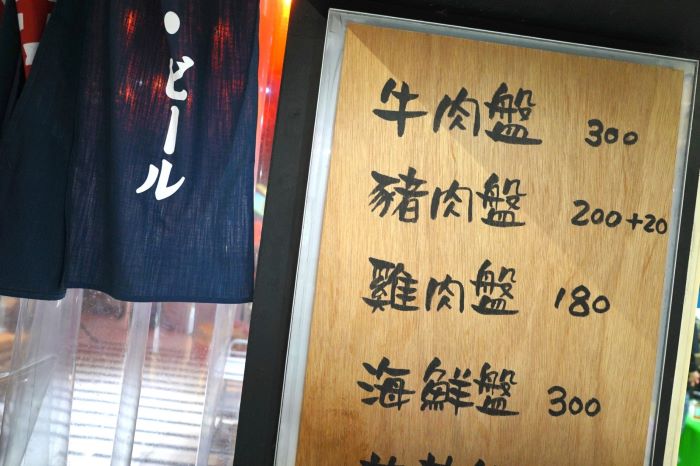 ・ビール
牛肉盤 300
豬肉盤 200+20
雞肉盤 180
海鮮盤 300